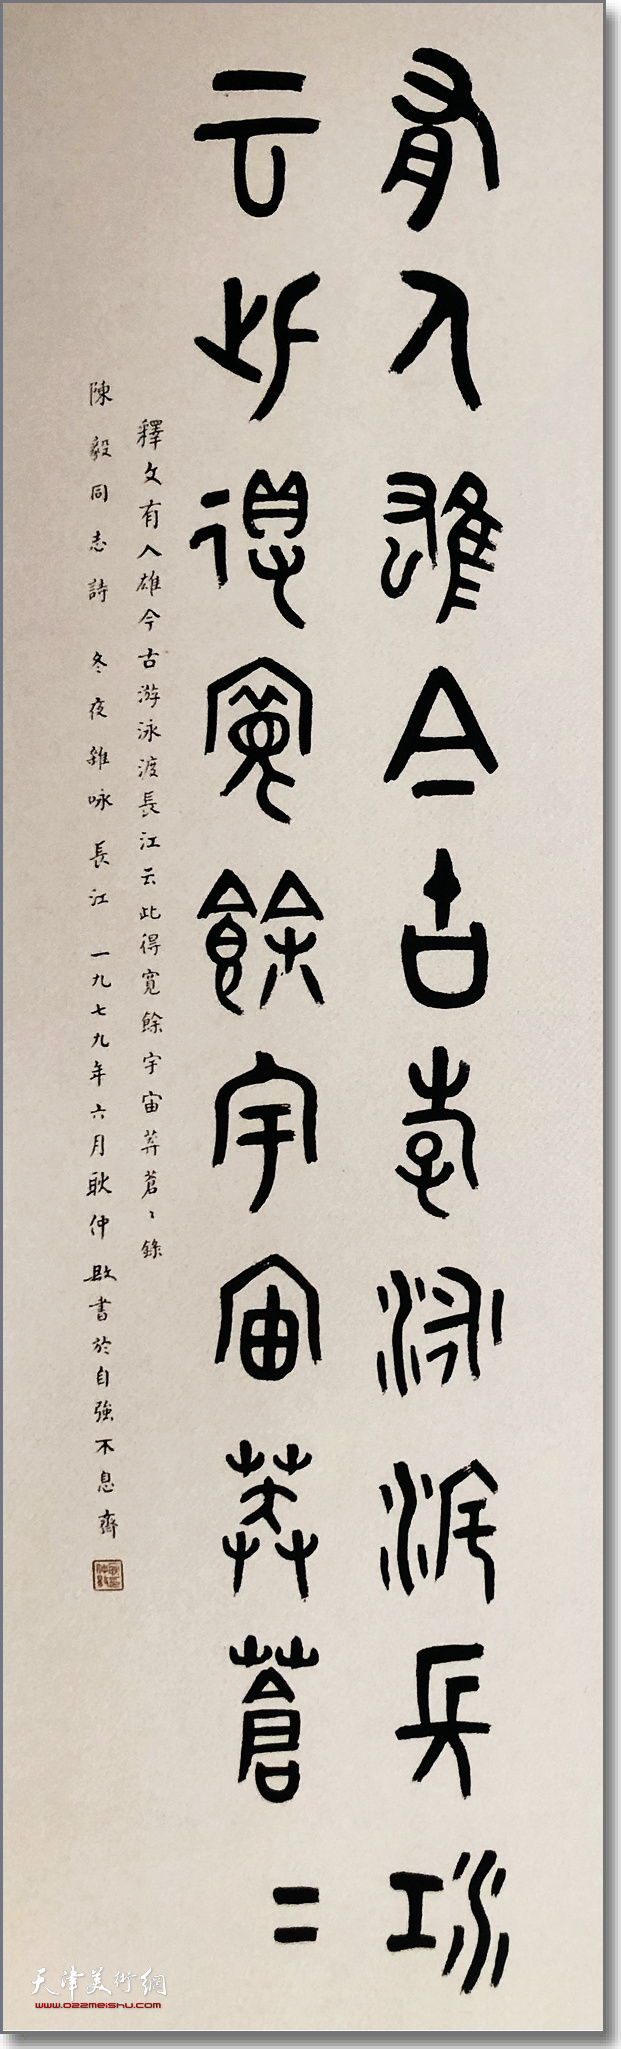 有人雄今古游泳渡長江
云此得寬餘宇宙莽蒼〻
釋文有人雄今古游泳渡長江云此得寬餘宇宙莽蒼〻錄
陳毅同志詩 冬夜雜咏長江 一九七九年六月耿仲敭書於自強不息齋
天津美術網
www.022meishu.com